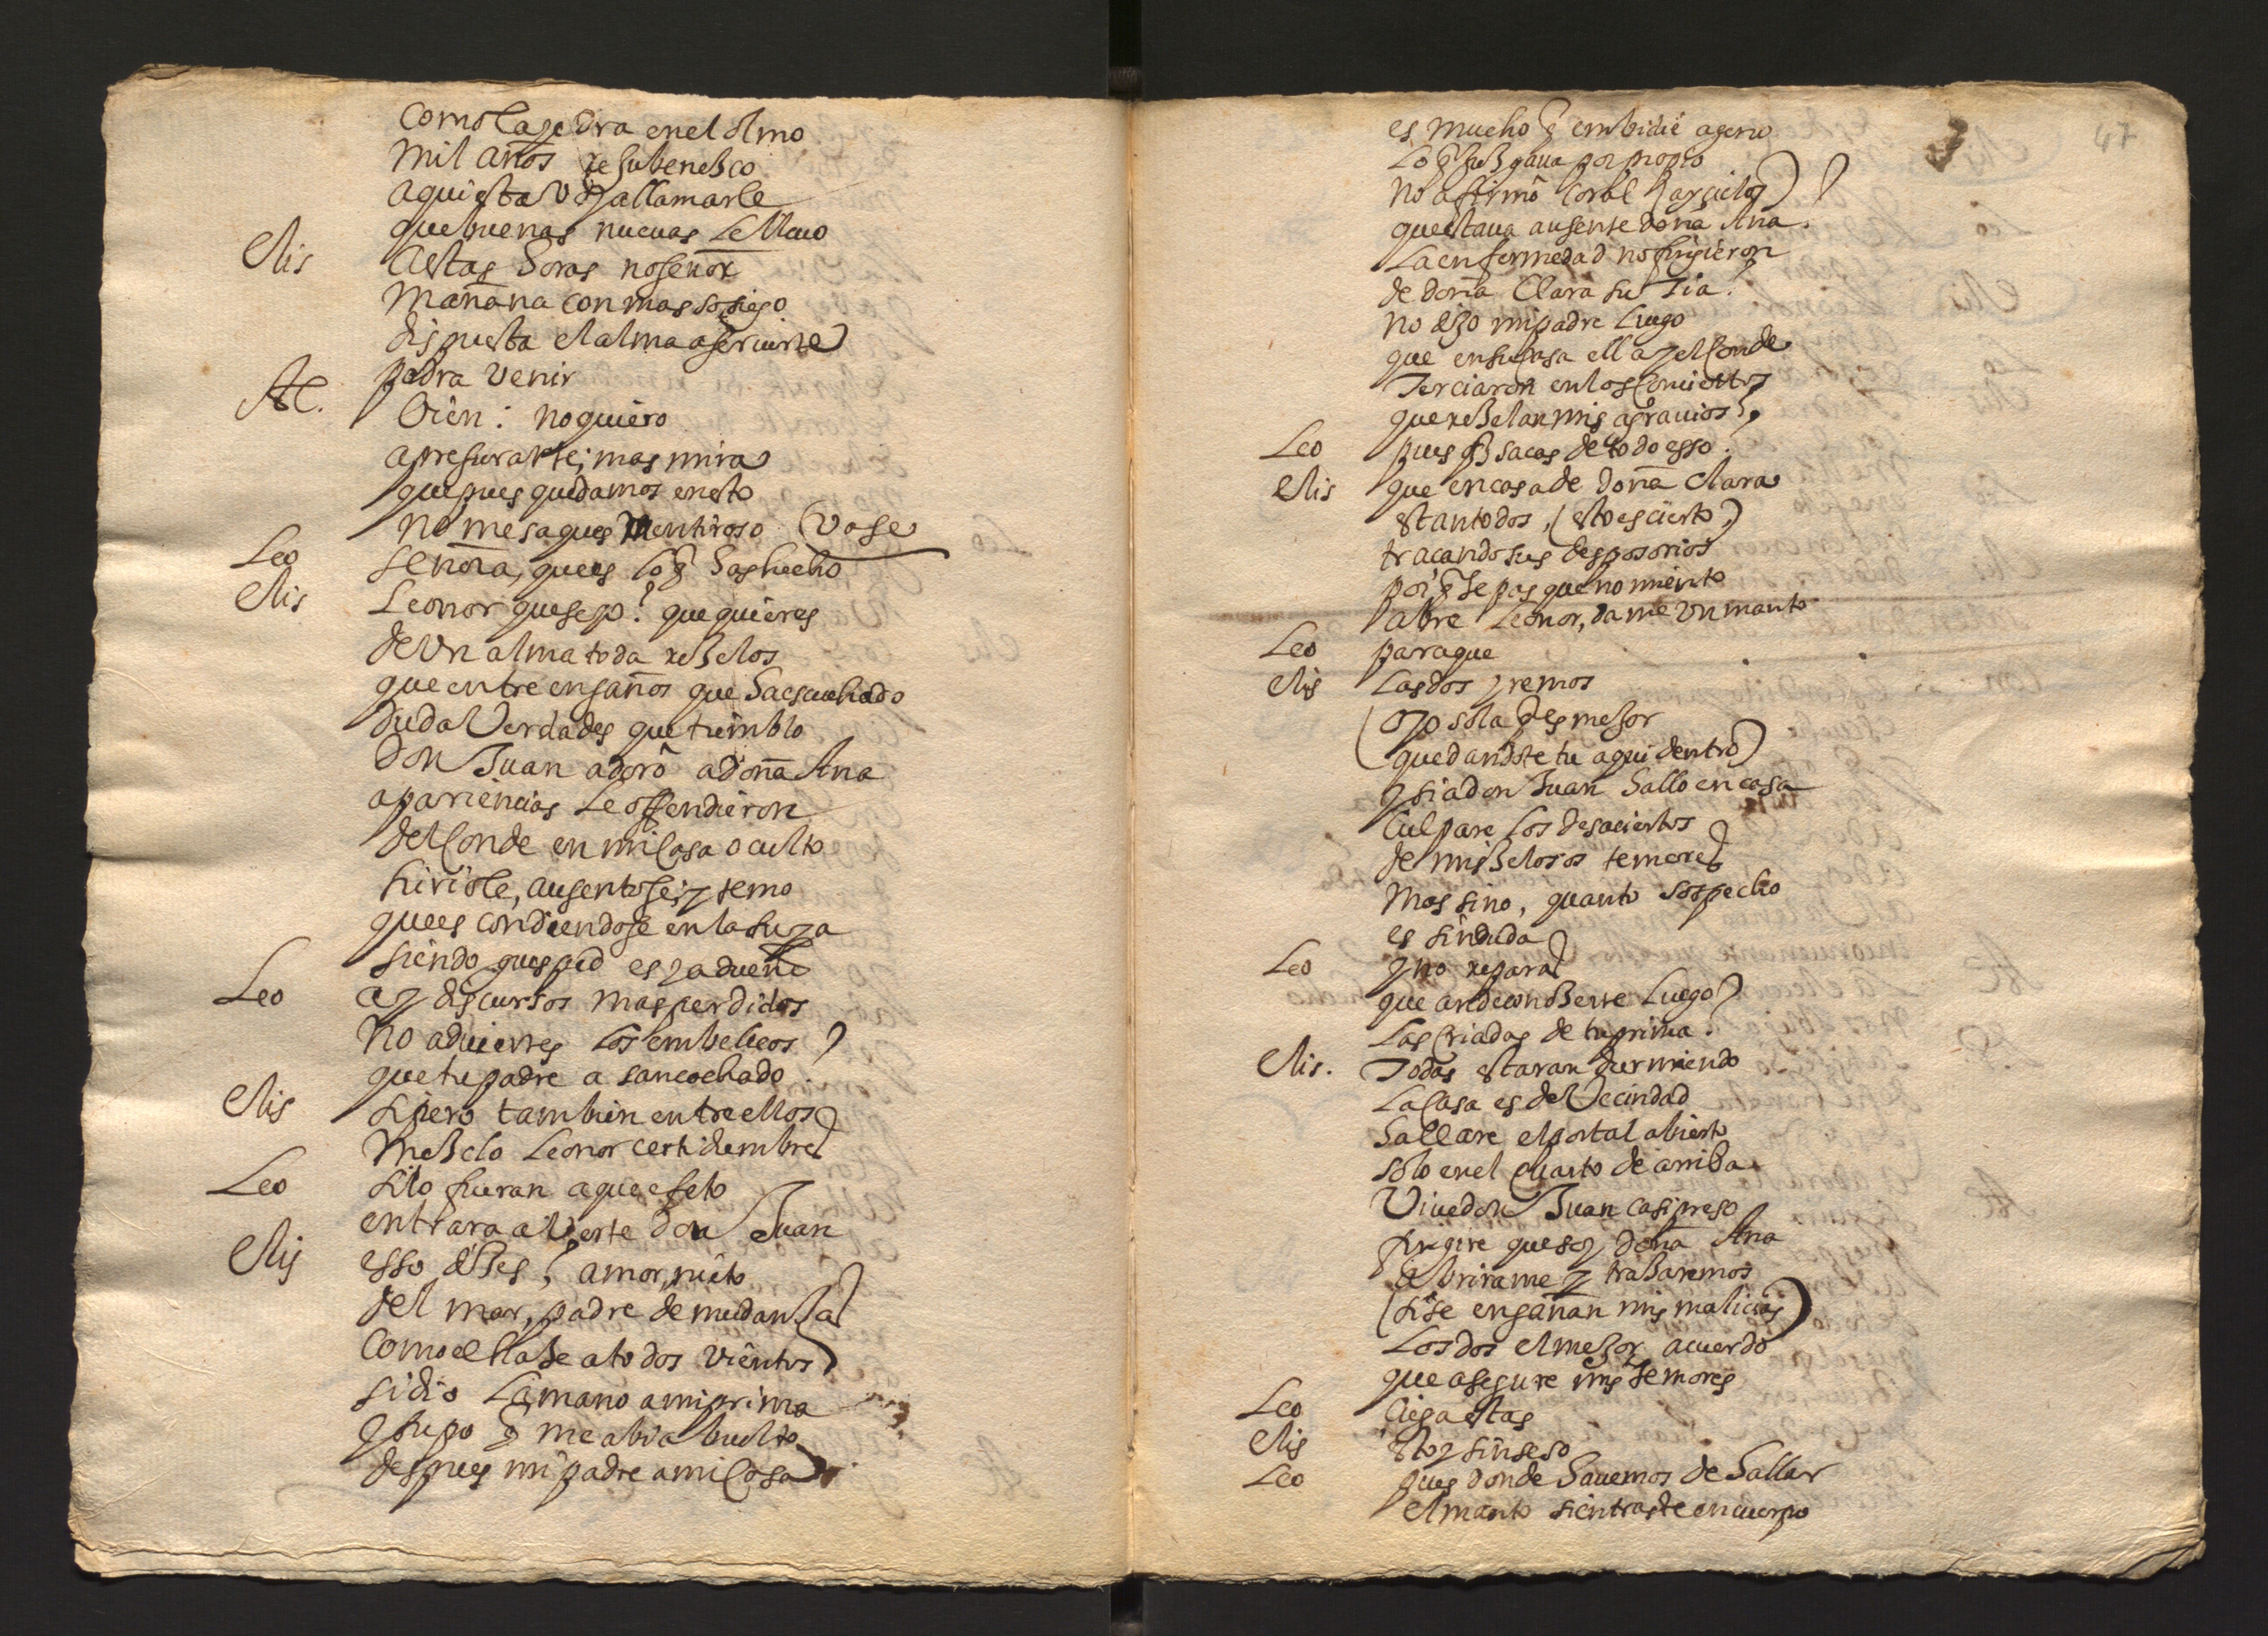 como la yedra en el olmo
mil años rejubenesco
aqui esta voy a llamarle
que buenas nuevas le llevo
Elis a estas horas no señor
mañana con mas sosiego
dispuesta el alma a serviirte
podra venir
Al. Bien: no quiero
apresurarte; mas mira
que pues quedamos en esto
no me saques mentiroso (vase
Leo señora, que es lo q̃ has hecho
Elis Leonor que se yo? que quieres
de Un alma toda reçelos
que entre engaños que ha escuchado
duda Verdades que tiemblo
Don Juan adorò a doña Ana
apariencias le offendieron
del Conde en mi casa oculto
hiriole, ausentose; y temo
que escondiendose en la suya
siendo guesped es ya dueño
Leo ay discursos mas perdidos
no adviertes los embelecos
que tu padre a sancochado?
Elis si pero tambien entre ellos
mezclo Leonor certidumbres
Leo si lo fueran a que efeto
entrara a Verte Don Juan
Elis esso dizes? amor, nieto
del mar, padre de mudanzas
como el haze a todos vientos
si dio la mano a mi prima
y supo q̃ me abia buelto
despues mi padre a mi casa
47
es mucho q̃ embidie ageno
lo q̃ juzgava por propio
no afirmò Coral (ay cielos)
que estava ausente doña Ana?
la enfermedad no fingieron
de doña Clara su Tia?
no dijo mi padre luego
que en su casa ella y el Conde
Terciaron en los conciertos
que rezelan mis agravios?
Leo pues q̃ sacas de todo esso?
Elis que en casa de doña Clara
estan todos, (esto es cierto,)
traçando sus desposorios
por q̃ sepas que no miento
abre Leonor, dame un manto
Leo para que
Elis las dos yremos
(o yo sola q̃ es mejor
quedandote tu aqui dentro)
y si a don Juan hallo en casa
culpare los desaciertos
de mis zelosos temores
mas sino, quanto sospecho
es sin duda
Leo y no reparas
que an de conozerte luego
las criadas de tu prima?
Elis. Todas estaran durmiendo
la casa es de Vecindad
hallare el portal abierto
solo en el cuarto de arriba
Vive don Juan casi preso
fingire que soy doña Ana
abrirame y trazaremos
(si se engañan mis malicias)
los dos el mejor acuerdo
que asegure mis temores
Leo Ciega estas
Elis estoy sin seso
Leo pues donde havemos de hallar
el manto si entraste en cuerpo